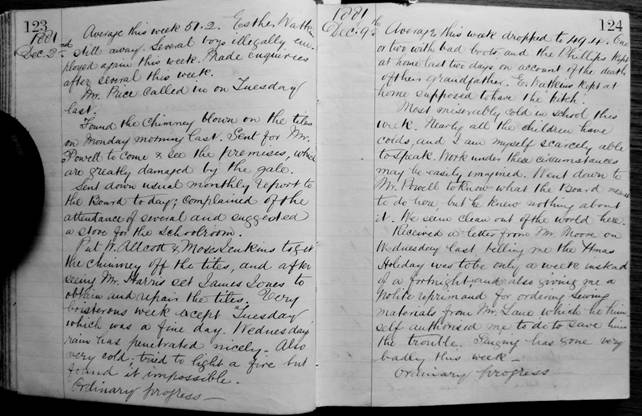 123
1881
Dec. 2nd
Average this week 51.2. Esther Watkin
still away. Several boys illegally em-
ployed again this week. Made enquiries
after several this week.
Mr. Price called in on Tuesday
last.
Found the Chimney blown on the tiles
on Monday morning last. Sent for Mr.
Powell to come & see the premises, which
are greatly damaged by the gale.
Sent down usual monthly report to
the Board today; complained of the
attentance of several and suggested
a stove for the schoolroom.
Put W. Allcott & Moses Jenkins to get
the chimney off the tiles, and after
seeing Mr. Harris set James Jones to
and repair the tiles. Very
boisterous week xcept Tuesday
which was a fine day. Wednesday's
rain has penetrated nicely. Also
very cold: tried to light a fire but
found it impossible.
Ordinary progress —
124
1881
Dec. 9th
Average this week dropped to 49.4. One
or two with bad boots and the Phillips kept
at home last two days on account of the death
of their grandfather. E. Watkins kept at
home supposed to have the 'itch'.
Most miserably cold in school this
week. Nearly all the children have
colds, and I am myself scarcely able
to speak. Work under these circumstances
may be easily imagined. Went down to
Mr. Powell to know what the Board mean
to do now, but he knew nothing about
it. We seem clean out of the world here.
Received a letter from Mr. Moore on
Wednesday last telling me the Xmas
Holiday was to be only a week instead
of a fortnight and also giving me a
polite reprimand for ordering Sewing
materials from Mr. Lane which he him-
self authorised me to do to save him
the trouble. Singing has gone very
badly this week —
Ordinary progress